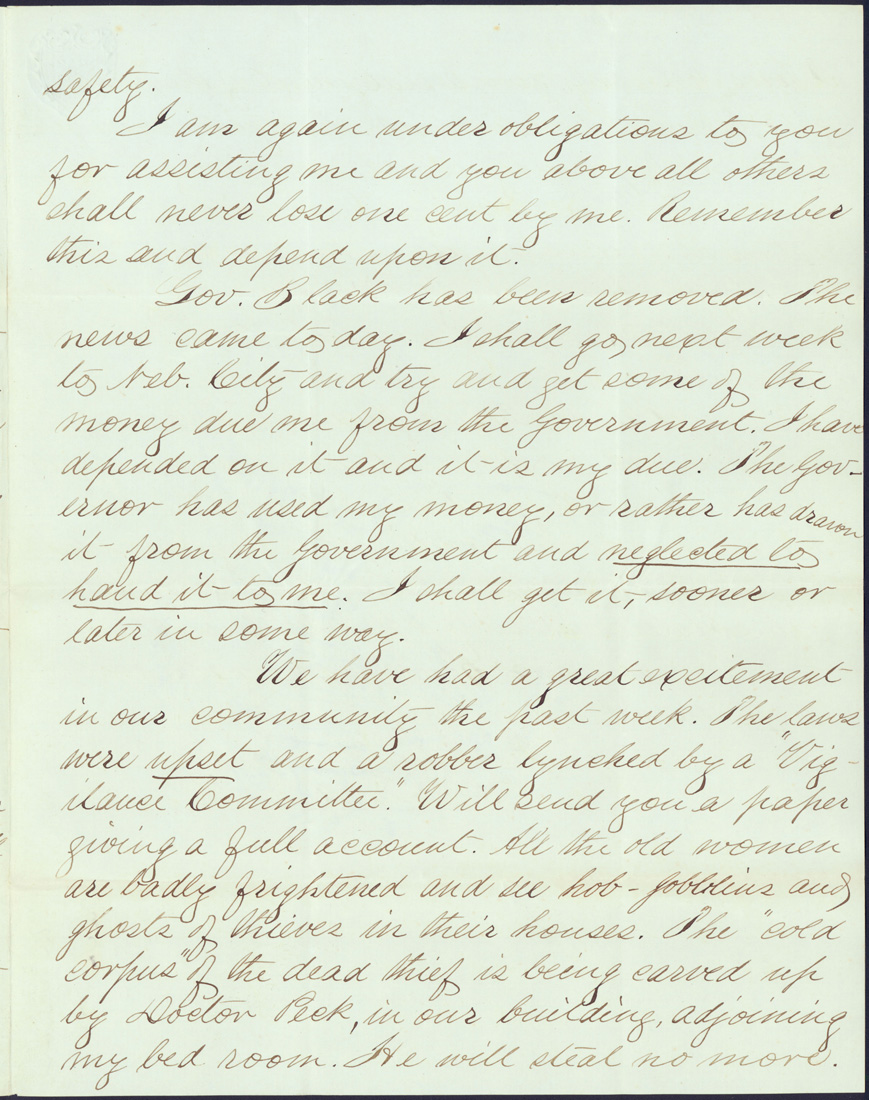 safety.
I am again under obligations to you
for assisting me and you above all others
shall never lose one cent by me. Remember
this and depend upon it.
Gov. Black has been removed. The
news came to day. I shall go next week
to Neb. City and try and get some of the
money due me from the Government. I have
depended on it and it is my due. The Gov-
ernor has used my money, or rather has drawn
it from the Government and neglected to
hand it to me. I shall get it, sooner or
later in some way.
We have had a great excitement
in our community the past week. The laws
were upset and a robber lynched by a "Vig-
ilance Committee." Will send you a paper
giving a full account. All the old women
are badly frightened and see hob-goblins and
ghosts of thieves in their houses. The "cold
corpus" of the dead thief is being carved up
by Doctor Peck, in our building, adjoining
my bed room. He will steal no more.